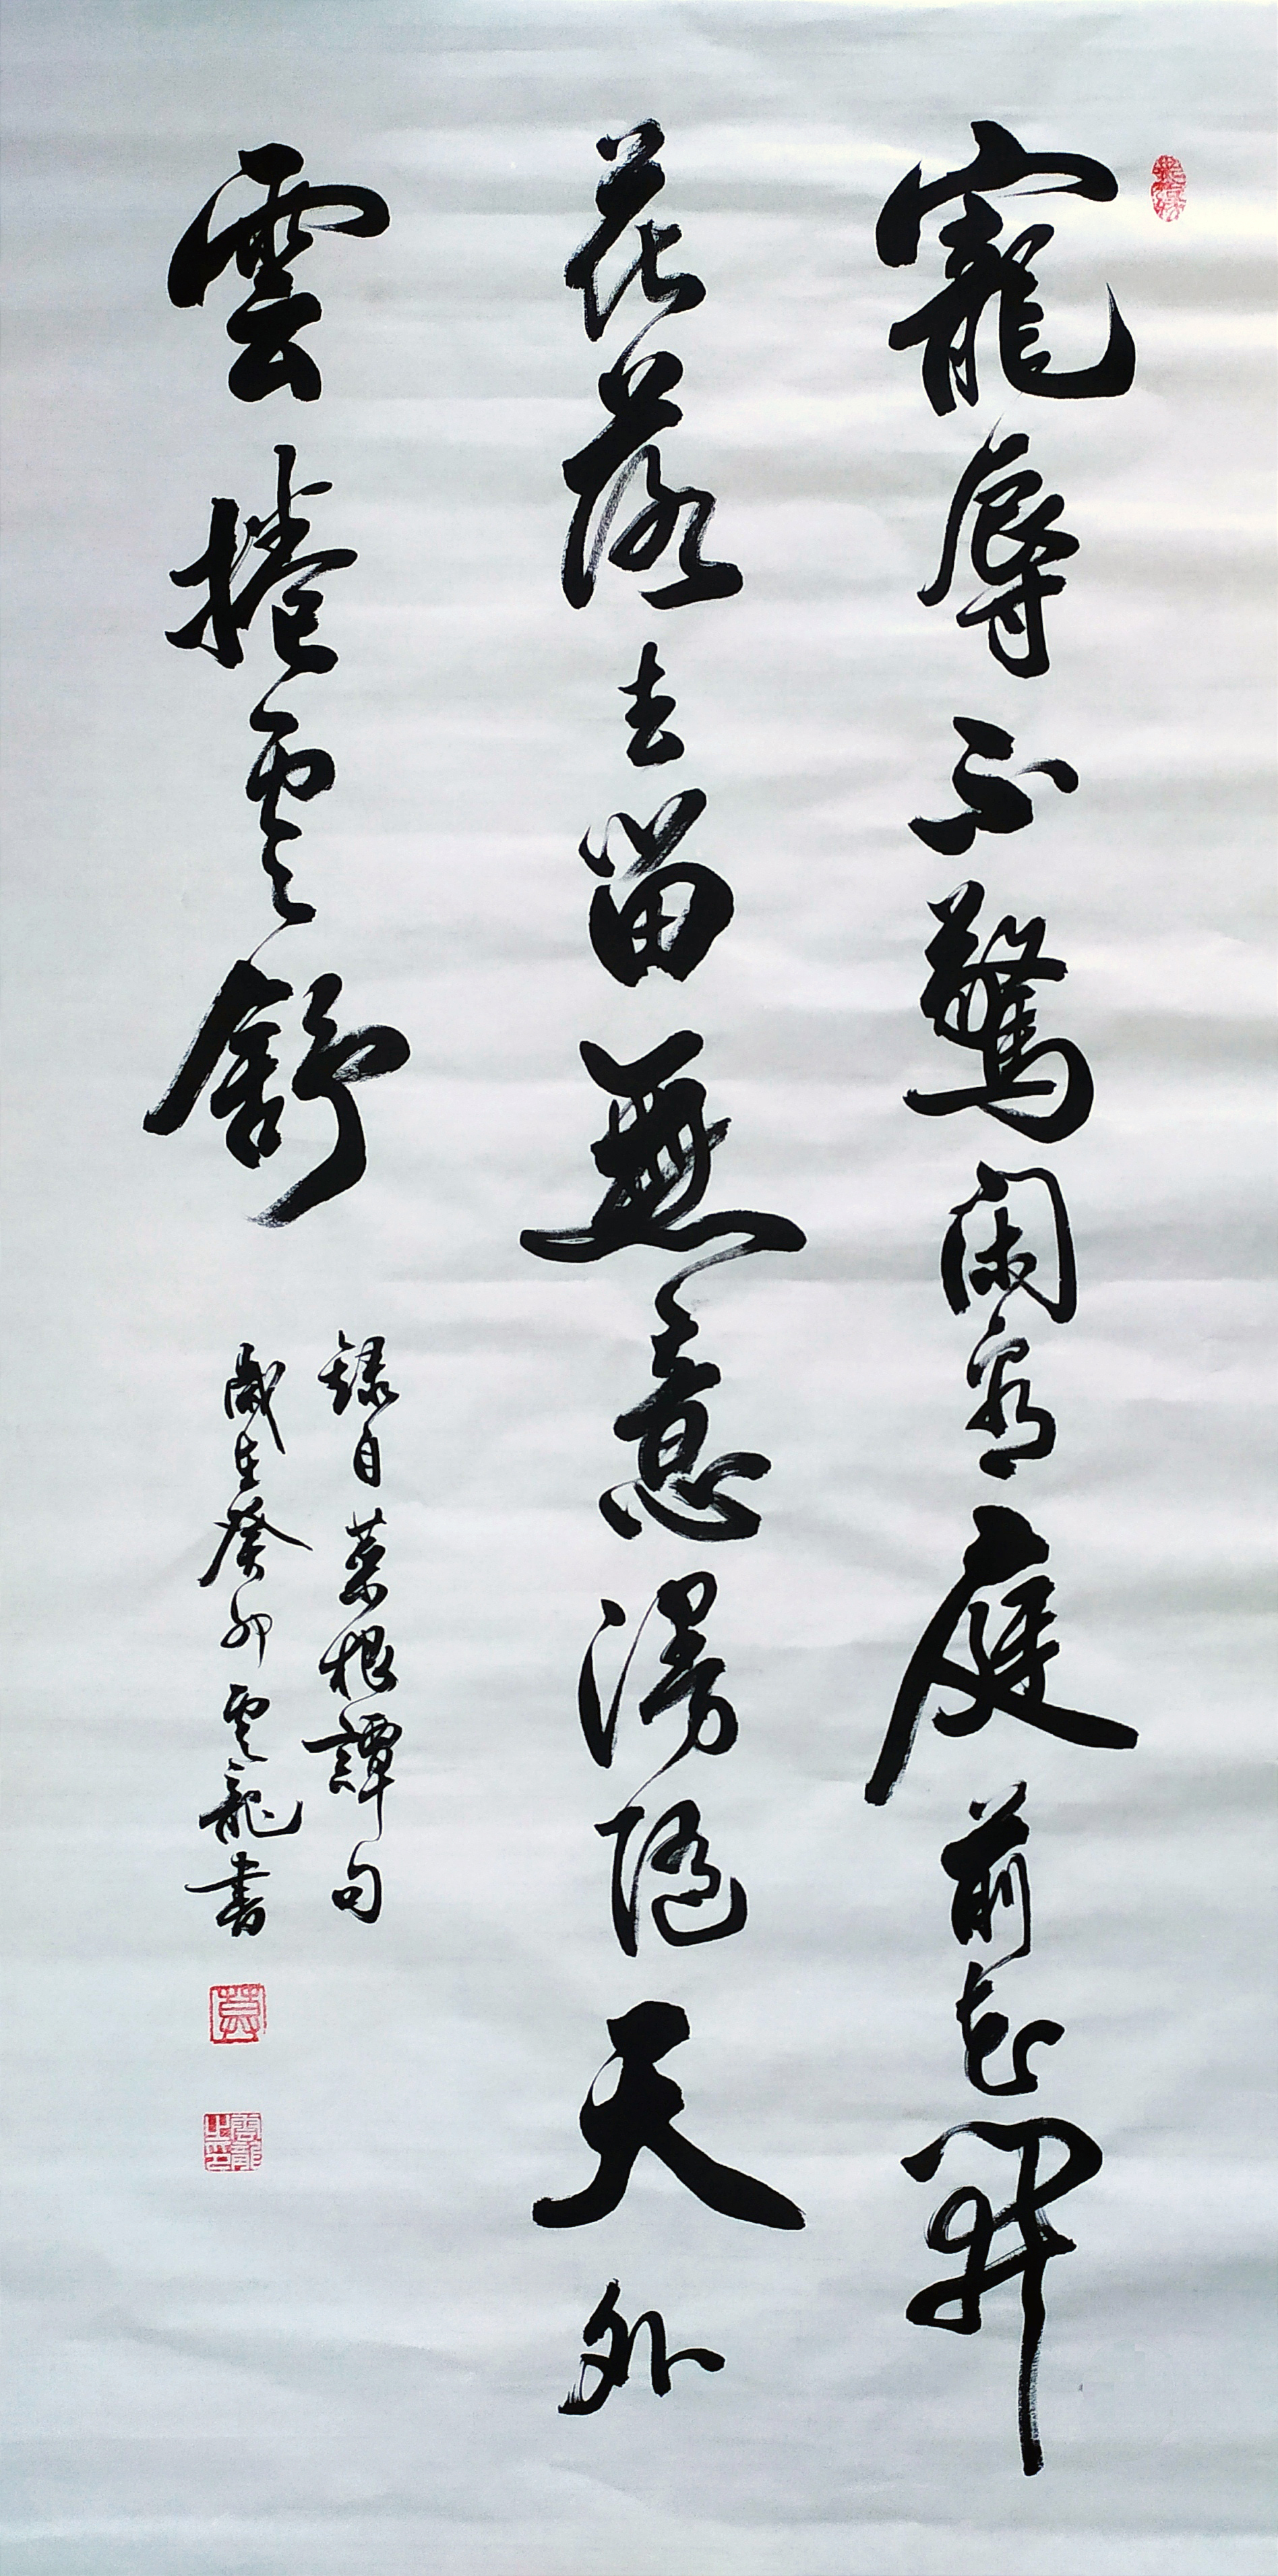 寵辱不驚閑看庭前花開
花落去留無意漫隨天外
雲捲雲舒
錄自菜根譚句
歲在癸卯雲龍書